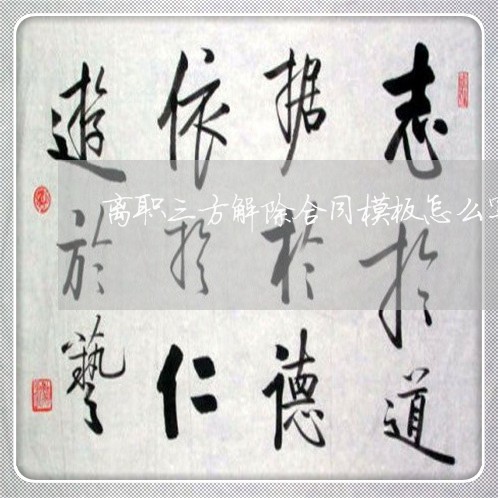 志於道
据於德
依於仁
遊於藝
离职三方解除合同模板怎么